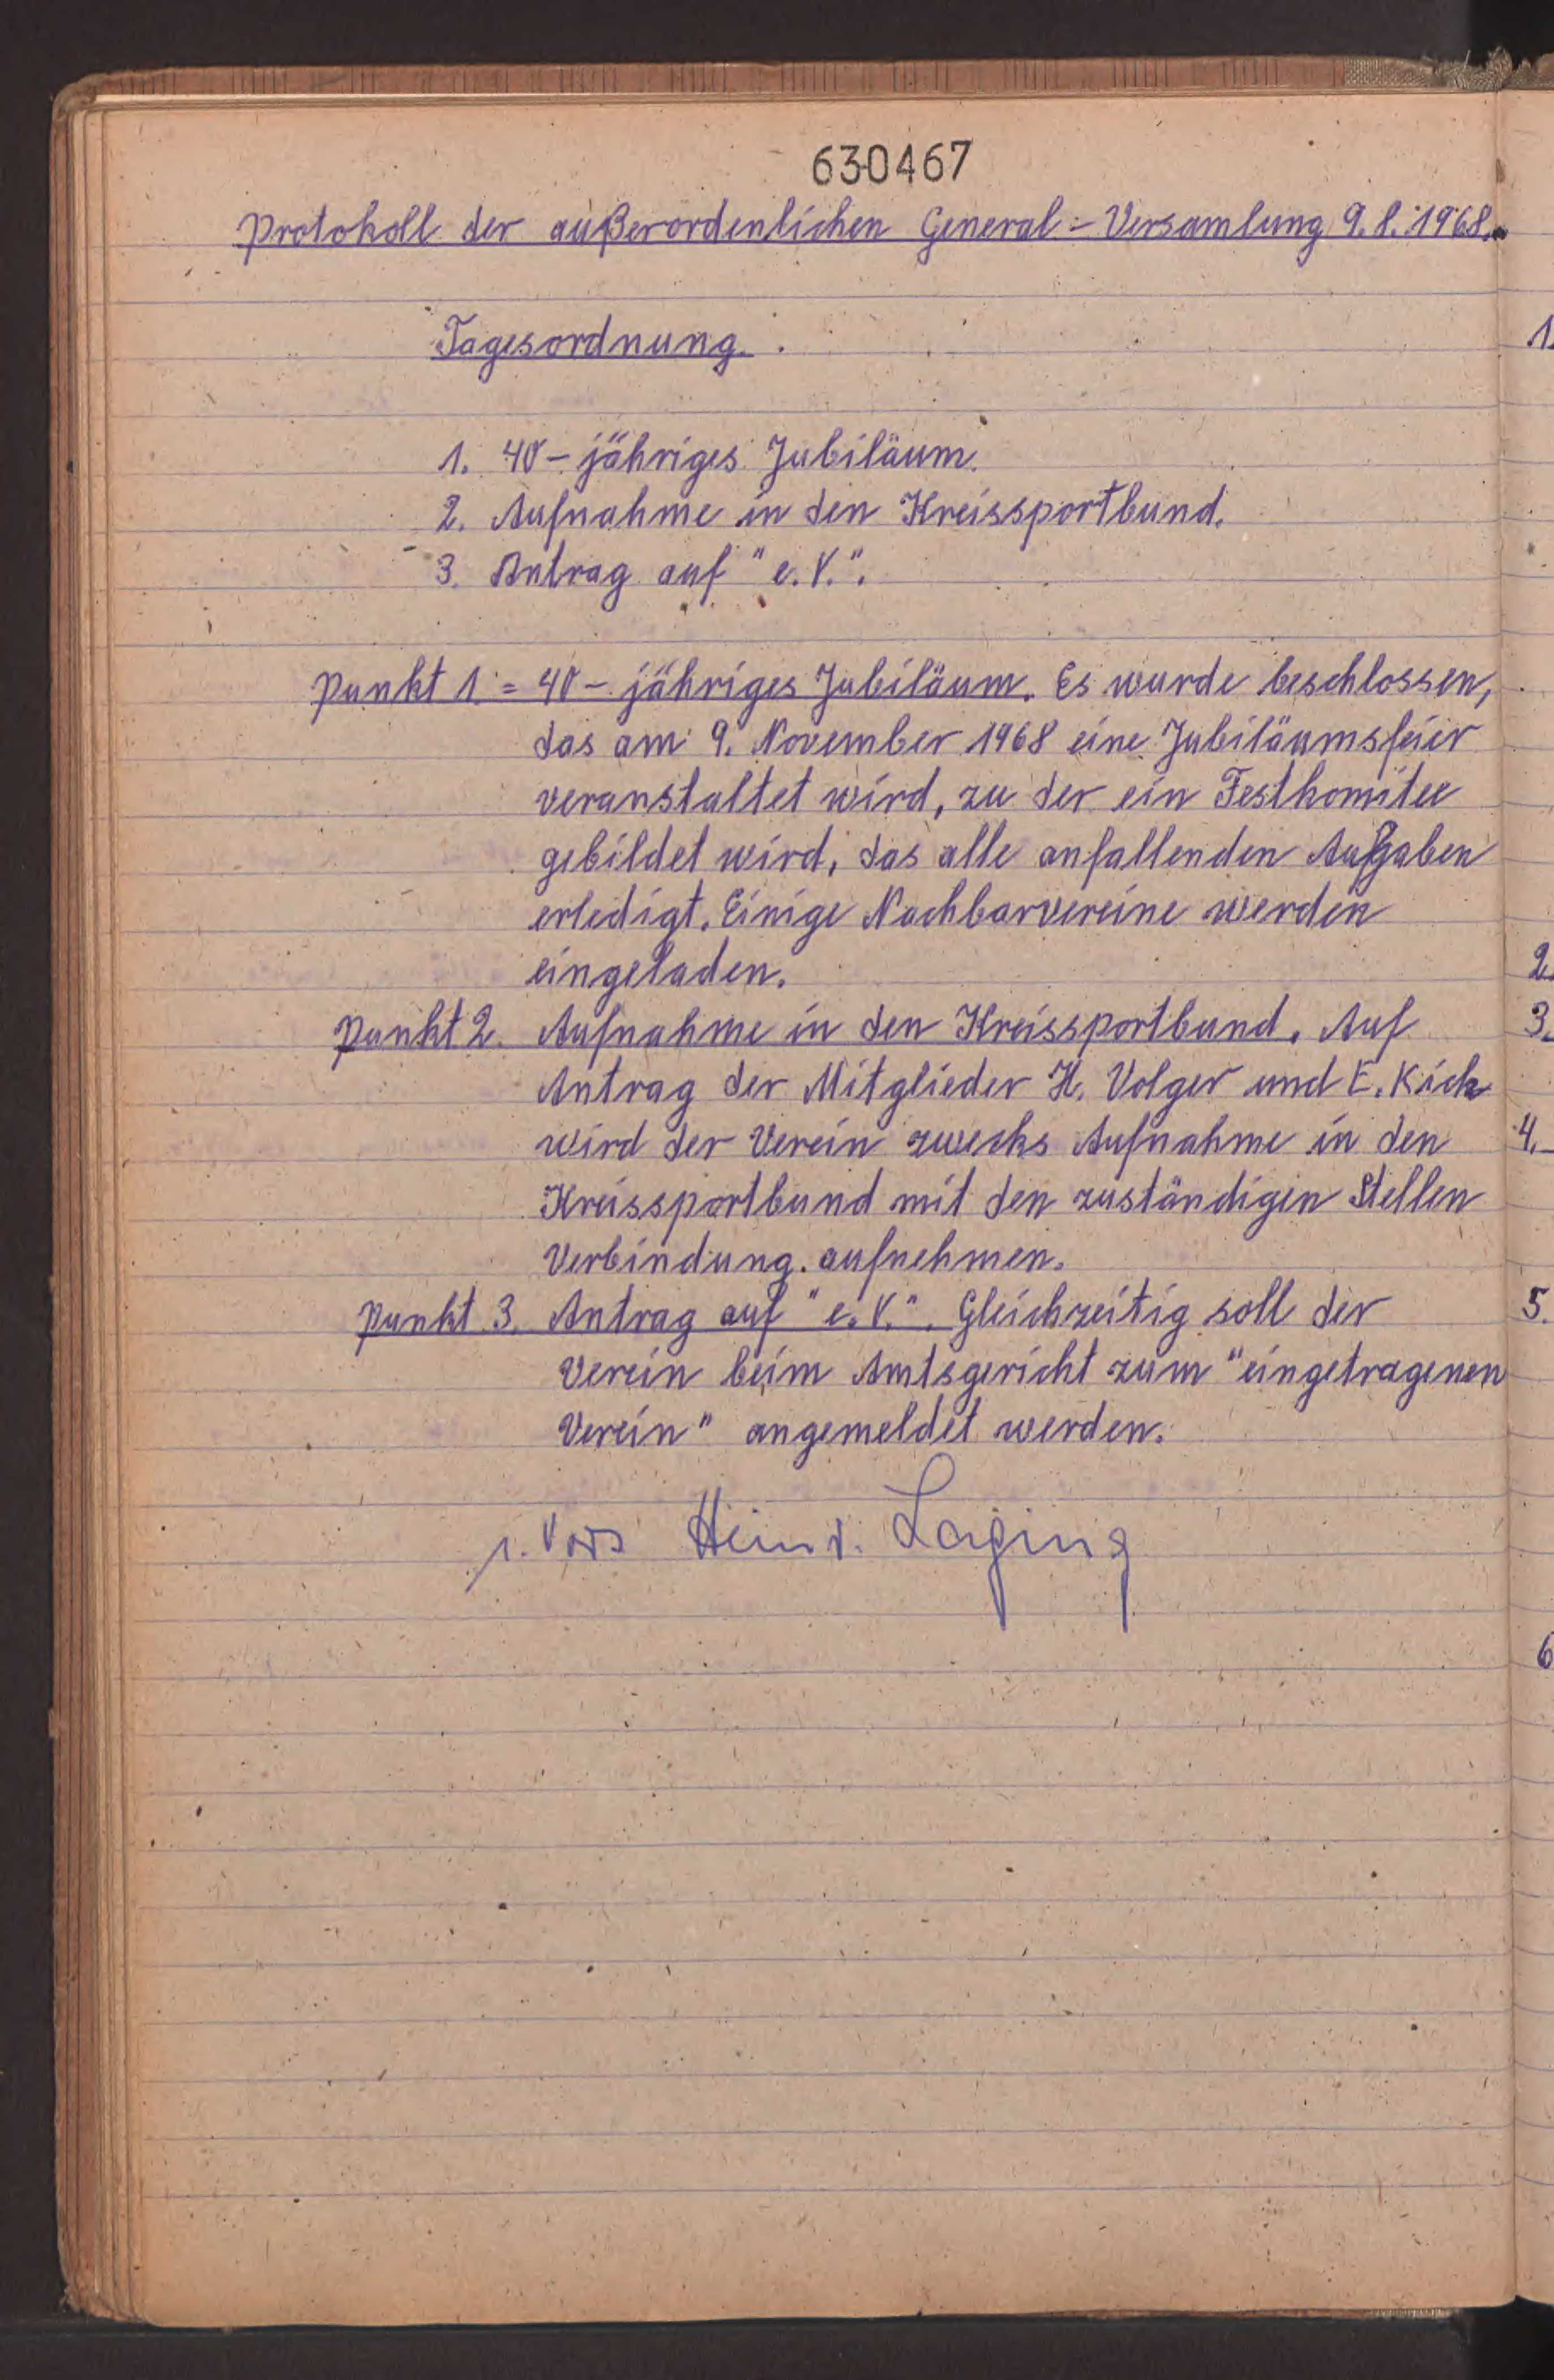 630467
Protokoll der außerordenlichen General-Versamlung 9.8.1968.
Tagesordnung.
1. 40-jähriges Jubiläum.
2. Aufnahme in den Kreissportbund.
3. Antrag auf "e.V.".
Punkt 1. = 40-jähriges Jubiläum. Es wurde beschlossen,
das am 9. November 1968 eine Jubiläumsfeier
veranstaltet wird, zu der ein Festkomitee
gebildet wird, das alle anfallenden Aufgaben
erledigt. Einige Nachbarvereine werden
eingeladen.
Punkt 2. Aufnahme in den Kreissportbund. Auf
Antrag der Mitglieder H. Volger und E. Kick
wird der Verein zwecks Aufnahme in den
Kreissportbund mit den zuständigen Stellen
Verbindung aufnehmen.
Punkt 3. Antrag auf "e.V.". Gleichzeitig soll der
Verein beim Amtsgericht zum "eingetragenen
Verein" angemeldet werden.
1. Vors Heinr. Laging
1.
2.
3.
4.
5.
6